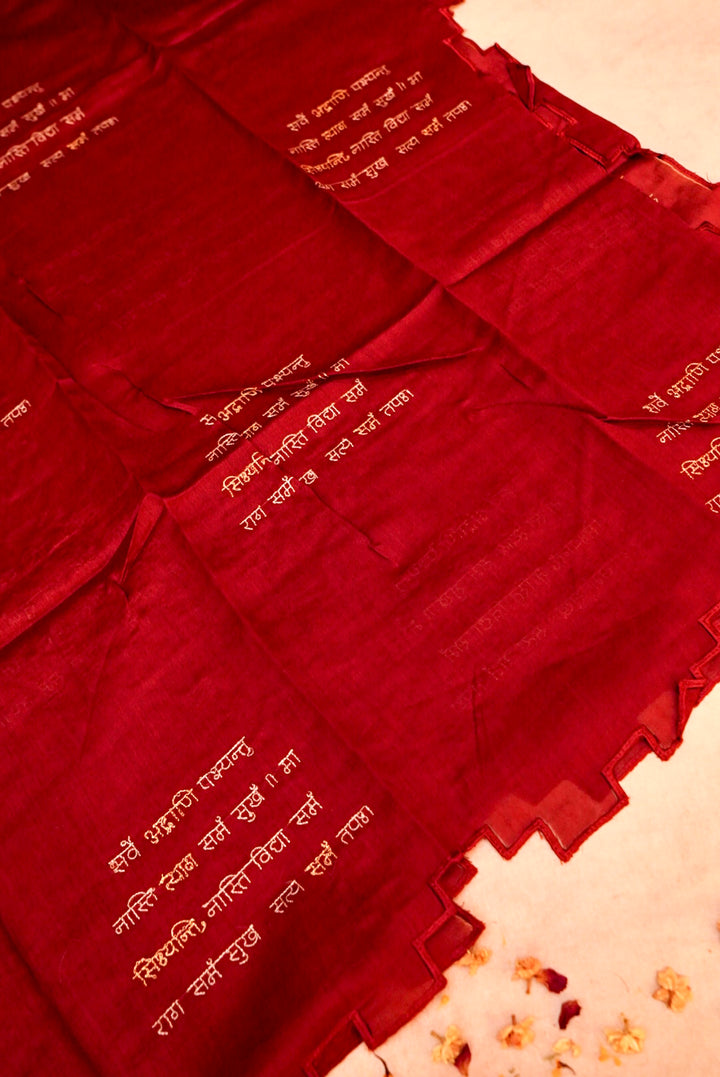 पश्यन्तु
समँ सुखँ ॥ मा
नास्ति विद्या समँ
सत्य समँ तपः।
सर्वे भद्राणि पश्यन्तु
नास्ति त्याग समँ सुखँ ॥ मा
नास्ति विद्या समँ
समँ दुख सत्य समँ तपः।
तपः।
भद्राणि पश्यन्तु
नास्ति समँ सुखँ ॥ मा
नास्ति विद्या समँ
राग समँ सत्य समँ तपः।
सर्वे भद्राणि
नास्ति
सर्वे भद्राणि पश्यन्तु
नास्ति त्याग समँ सुखँ ॥ मा
नास्ति विद्या समँ
राग समँ दुख सत्य समँ तपः।